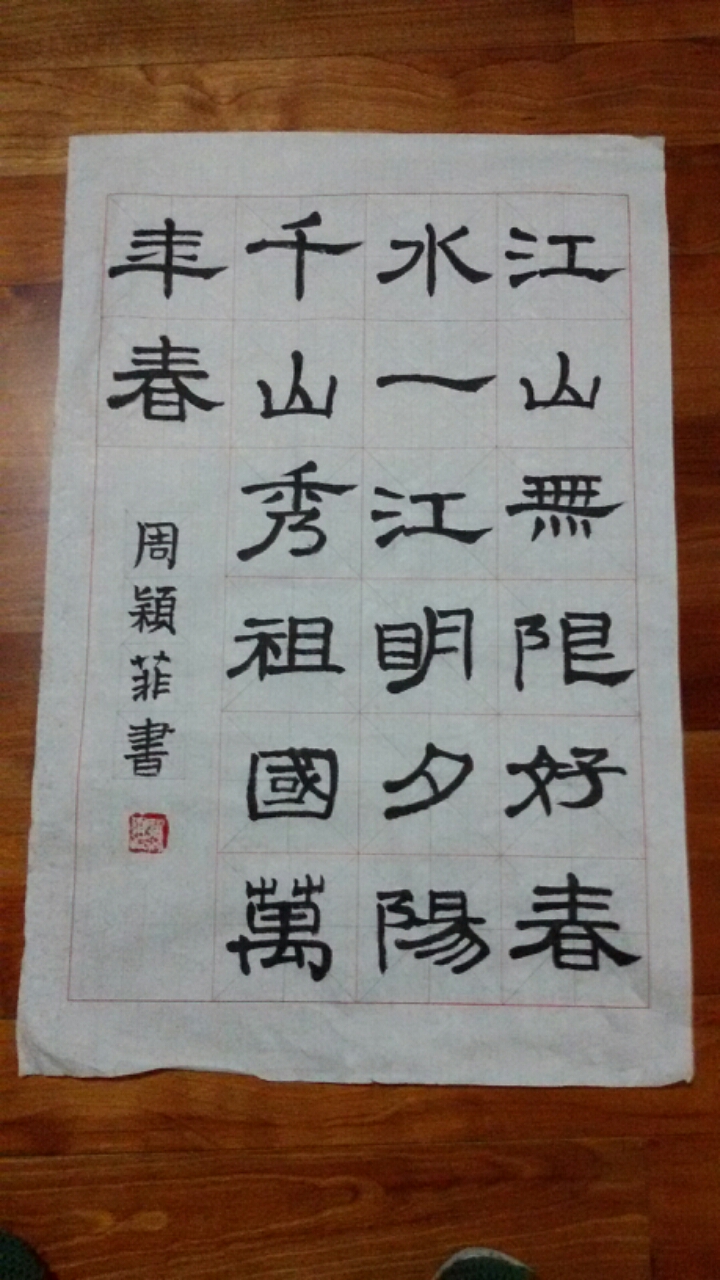 江山無限好春
水一江明夕陽
千山秀祖國萬
年春
周穎菲書